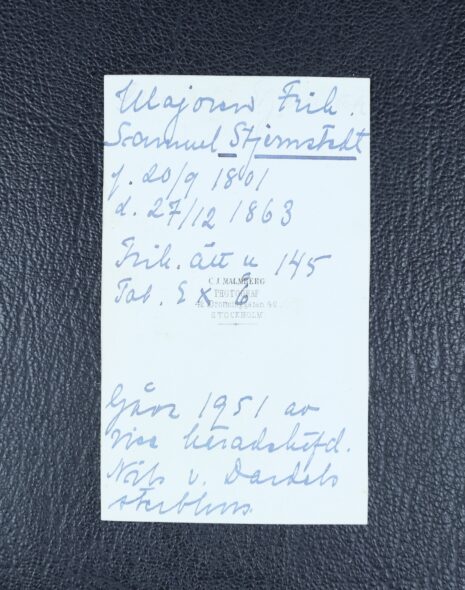 Majoren Frih.
Samuel Stjernstedt
f. 20/9 1801
d. 27/12 1863
Frih. ätt n 145
Tab. 8
C. J. MALMBERG
PHOTOGRAF
42 Drottninggatan 42
STOCKHOLM
Gåva 1951 av
vice häradshöfd.
Nils v. Dardels
sterbhus